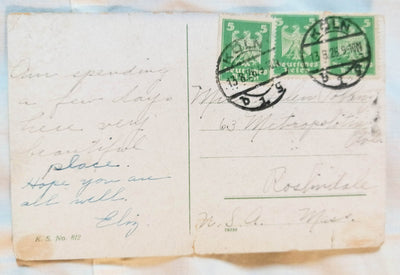 Am spending
a few days
here very
beautiful
place.
Hope you are
all well.
Eliz.
K. S. No. 612
5 5 5
Deutsches Reich
KÖLN
KÖLN
63 Metropolitan
Ave
Roslindale
U.S.A. Mass.